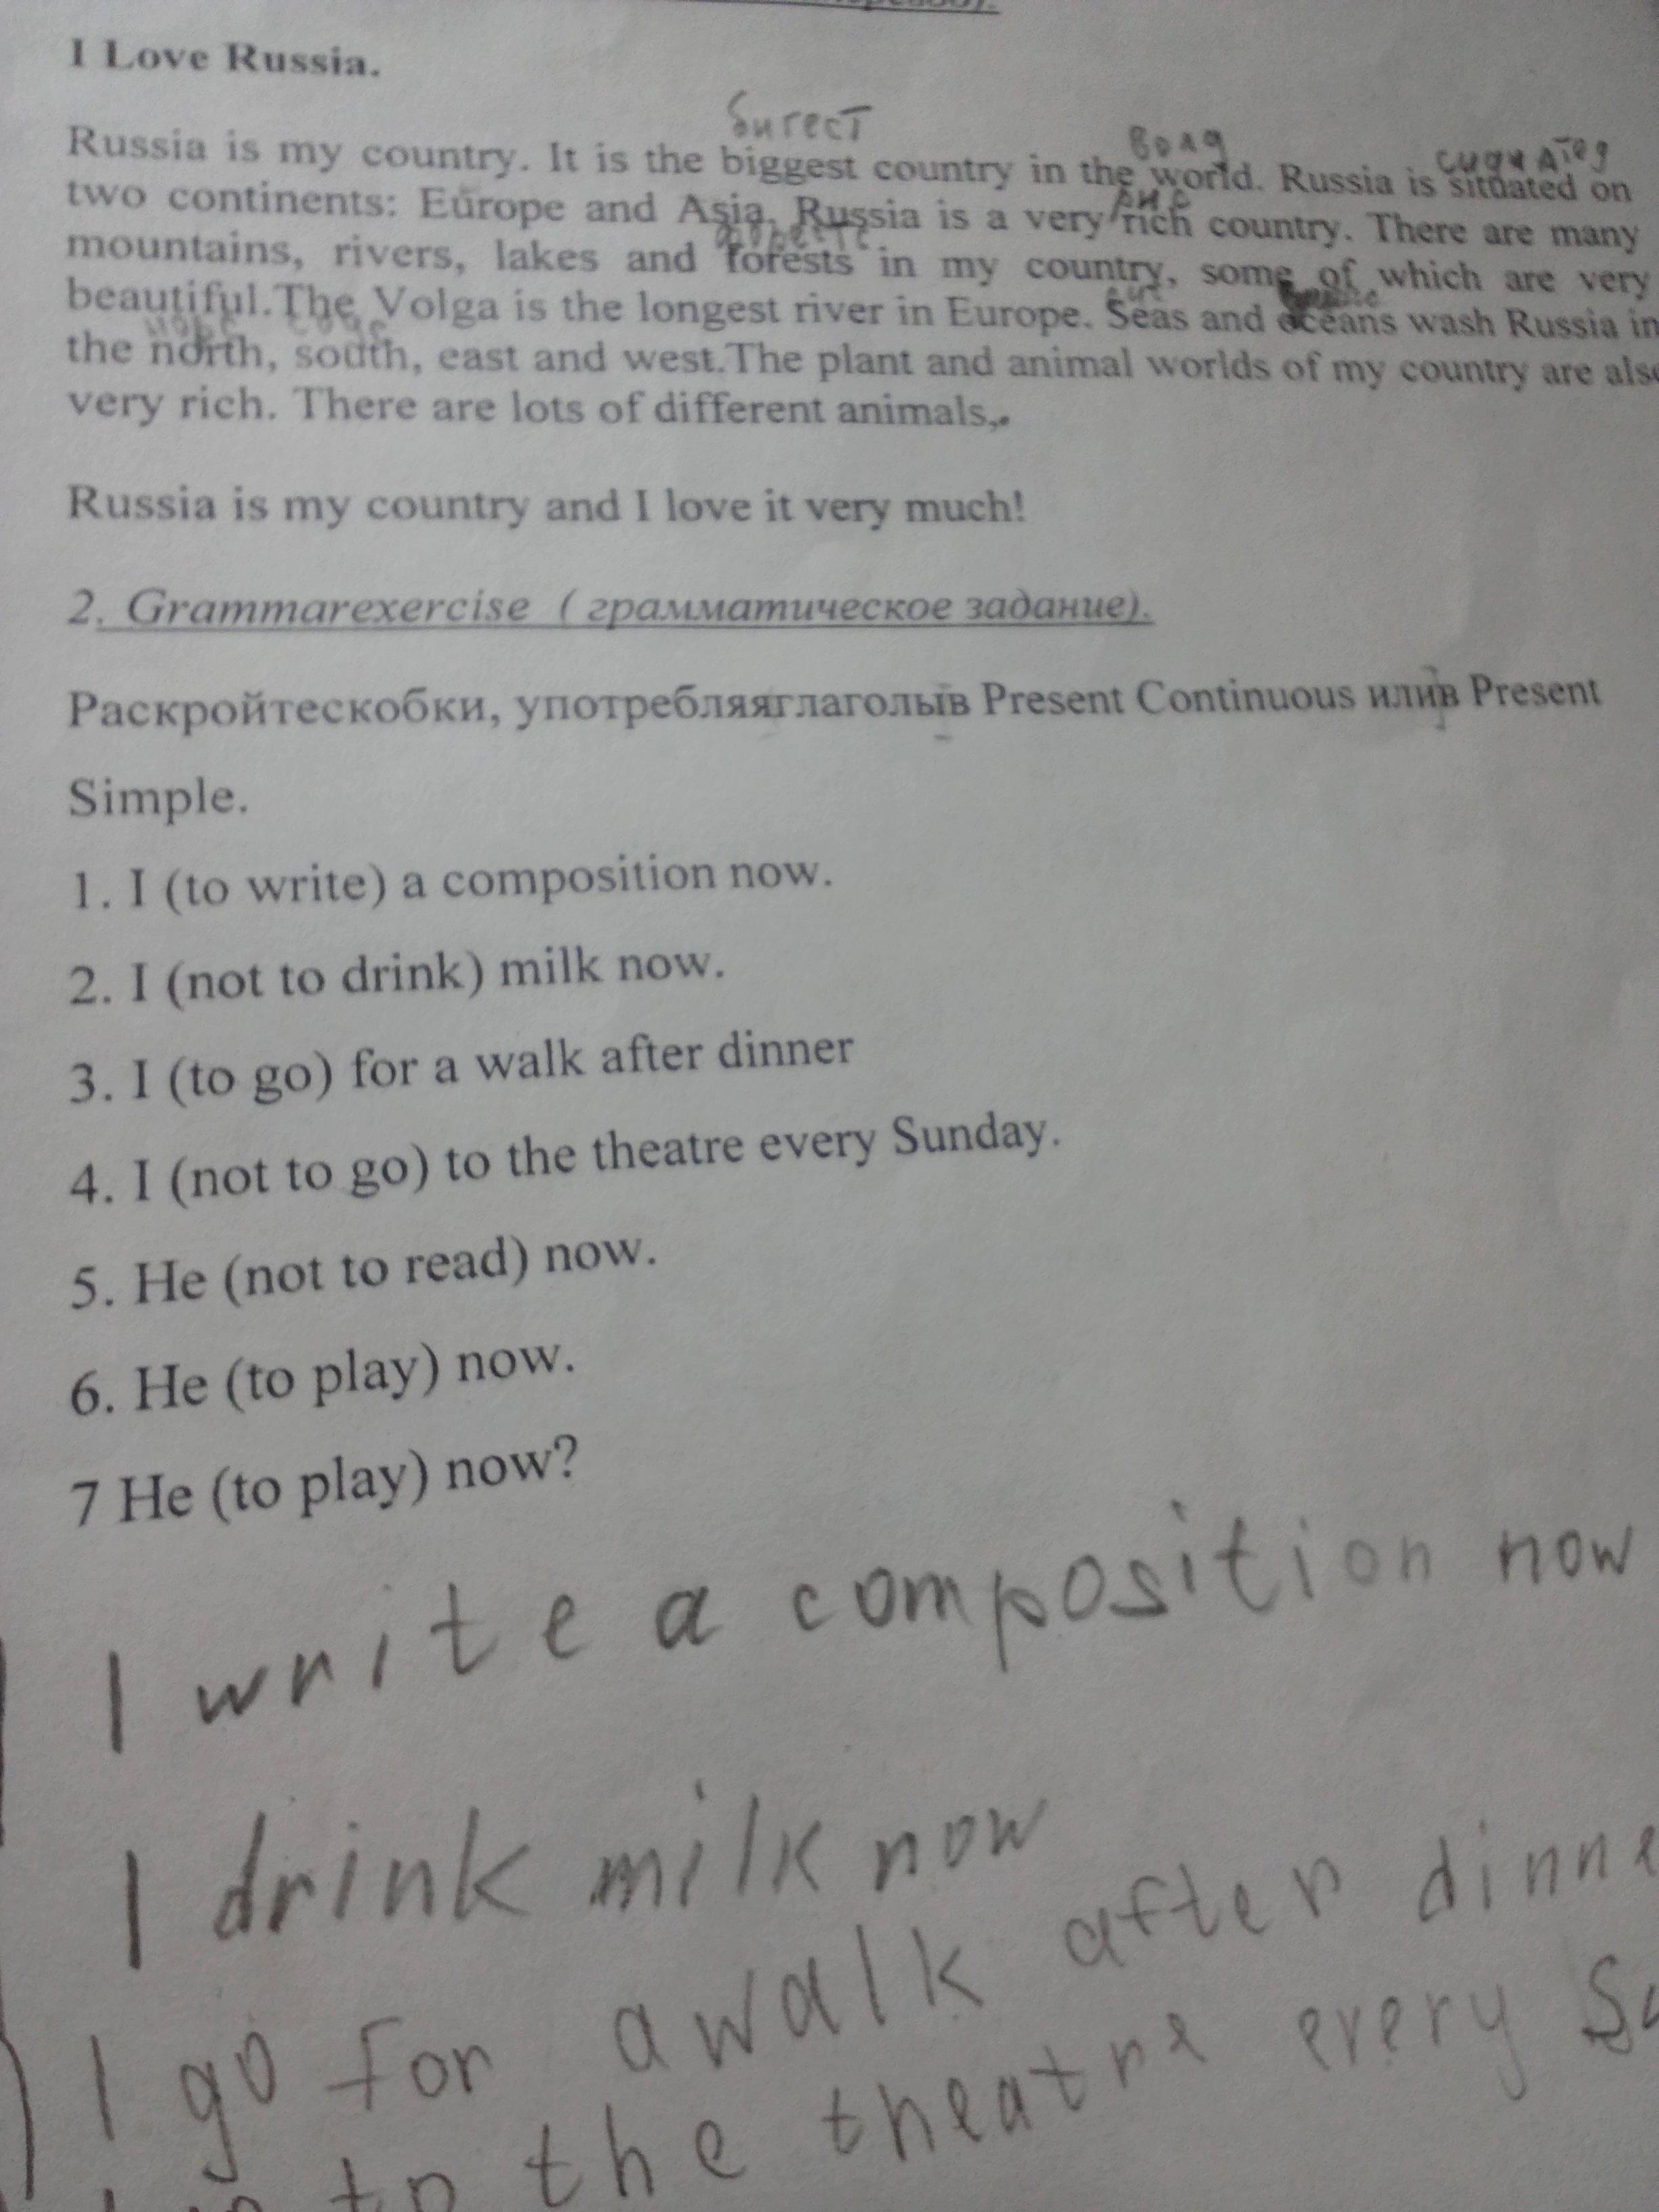 I Love Russia.
бигест
волд
Russia is my country. It is the biggest country in the world. Russia is situated on
рич
two continents: Europe and Asia. Russia is a very rich country. There are many
mountains, rivers, lakes and forests in my country, some of which are very
beautiful.The Volga is the longest river in Europe. Seas and oceans wash Russia in
the north, south, east and west.The plant and animal worlds of my country are also
very rich. There are lots of different animals,.
Russia is my country and I love it very much!
2. Grammarexercise ( грамматическое задание).
Раскройтескобки, употребляяглаголыв Present Continuous илив Present
Simple.
1. I (to write) a composition now.
2. I (not to drink) milk now.
3. I (to go) for a walk after dinner
4. I (not to go) to the theatre every Sunday.
5. He (not to read) now.
6. He (to play) now.
7 He (to play) now?
I write a composition now
I drink milk now
I go for a walk after dinne
to the theatre every Su